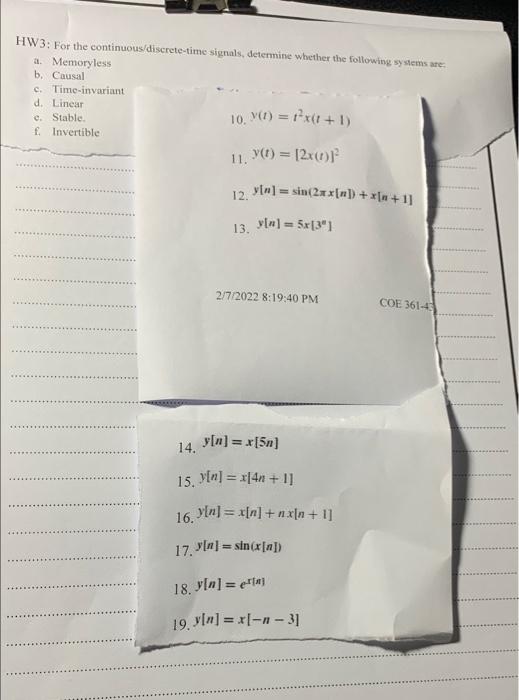 HW3: For the continuous/discrete-time signals, determine whether the following systems are:
a. Memoryless
b. Causal
c. Time-invariant
d. Linear
e. Stable.
f. Invertible
10. y(t) = t²x(t + 1)
11. y(t) = [2x(t)]²
12. y[n] = sin(2πx[n]) + x[n + 1]
13. y[n] = 5x[3ⁿ]
2/7/2022 8:19:40 PM COE 361-43
14. y[n] = x[5n]
15. y[n] = x[4n + 1]
16. y[n] = x[n] + nx[n + 1]
17. y[n] = sin(x[n])
18. y[n] = eˣ[ⁿ]
19. y[n] = x[−n − 3]